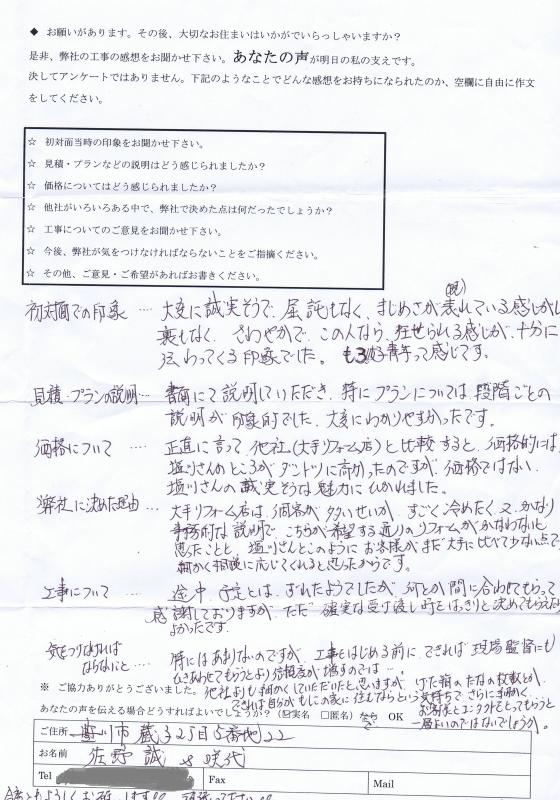 ◆ お願いがあります。その後、大切なお住まいはいかがでいらっしゃいますか？
是非、弊社の工事の感想をお聞かせ下さい。あなたの声が明日の私の支えです。
決してアンケートではありません。下記のようなことでどんな感想をお持ちになられたのか、空欄に自由に作文
をしてください。
☆ 初対面当時の印象をお聞かせ下さい。
☆ 見積・プランなどの説明はどう感じられましたか？
☆ 価格についてはどう感じられましたか？
☆ 他社がいろいろある中で、弊社で決めた点は何だったでしょうか？
☆ 工事についてのご意見をお聞かせ下さい。
☆ 今後、弊社が気をつけなければならないことをご指摘ください。
☆ その他、ご意見・ご希望があればお書きください。
初対面での印象 … 大変に誠実そうで、屈託もなく、まじめさが表れている感じがし
裏もなく、さわやかで、この人なら、任せられる感じが、十分に
伝わってくる印象でした。もろ好青年って感じです。
見積・プランの説明… 書面にて説明していただき、特にプランについては、段階ごとの
説明が印象的でした。大変にわかりやすかったです。
価格について … 正直に言って、他社(大手リフォーム店)と比較すると、価格的には
塩川さんのところがダントツに高かったのですが、価格ではない
塩川さんの誠実そうな魅力にひかれました。
弊社に決めた理由 … 大手リフォーム店は、個客が多いせいか、すごく冷めたく、又、かなり
事務的な説明で、こちらが希望する通りのリフォームがかなわないと
思ったことと、塩川さんとこのようにお客様がまだ大手に比べて少ない点で
細かく相談に応じてくれると思ったからです。
工事について … 途中、予定とは、ずれたようでしたが、何とか間に合わせてもらって
感謝しておりますが、ただ、確実な受け渡し時をはっきりと決めてもらえたら
よかったです。
気をつけなければ
ならないこと… 特にはありませんのですが、工事をはじめる前に、できれば現場監督にも
ひきあわせてもらうとより信頼度が増すのでは…。
他社よりも細かくしていただいたと思いますが、げた箱のたなの枚数とか、
できれば自分がもしこの家に住むならという気持ちで、さらに細かく、
お客様とコンタクトをとってもらうと
一層よいのではないでしょうか。
※ ご協力ありがとうございました。
あなたの声を伝える場合どうすればよいでしょうか？(☑実名 □匿名) なら OK
ご住所 市蔵 325 5番地22
お名前 佐野 誠 咲代
Tel Fax Mail